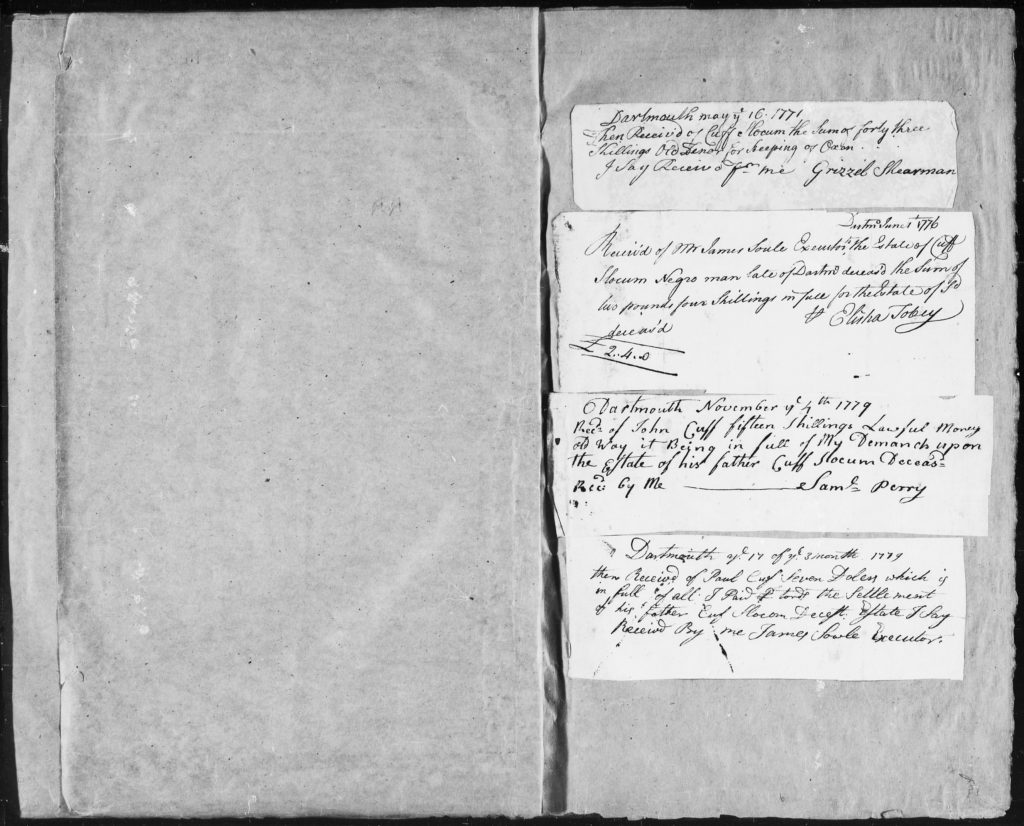 Dartmouth may yͤ 16. 1771
then Receivd of Cuff Slocum the Sum of forty three
Shillings Old Tenor for Keeping of Oxen
I Say Receivd pr me Grizzel Shearman
Dartmo June 1t 1776
Receivd of Mr James Soule Executr to the Estate of Cuff
Slocum Negro man late of Dartmo deceasd the Sum of
two pounds four Shillings in full for the Estate of Sd
deceasd
Elisha Tobey
£ 2.4.0
Dartmouth November ye 4th 1779
Recd of John Cuff fifteen Shillings Lawful Money
old Way it Being in full of My Demands upon
the Estate of his father Cuff Slocum Deceasd
Recd by Me Saml Perry
Dartmouth ye 17 of ye 3 month 1779
then Receivd of Paul Cuf Seven Dolers which is
in full of all I Paid tords the Settlement
of his father Cuf Slocom Decest Estate I Say
Receivd By me James Sowle Executor.